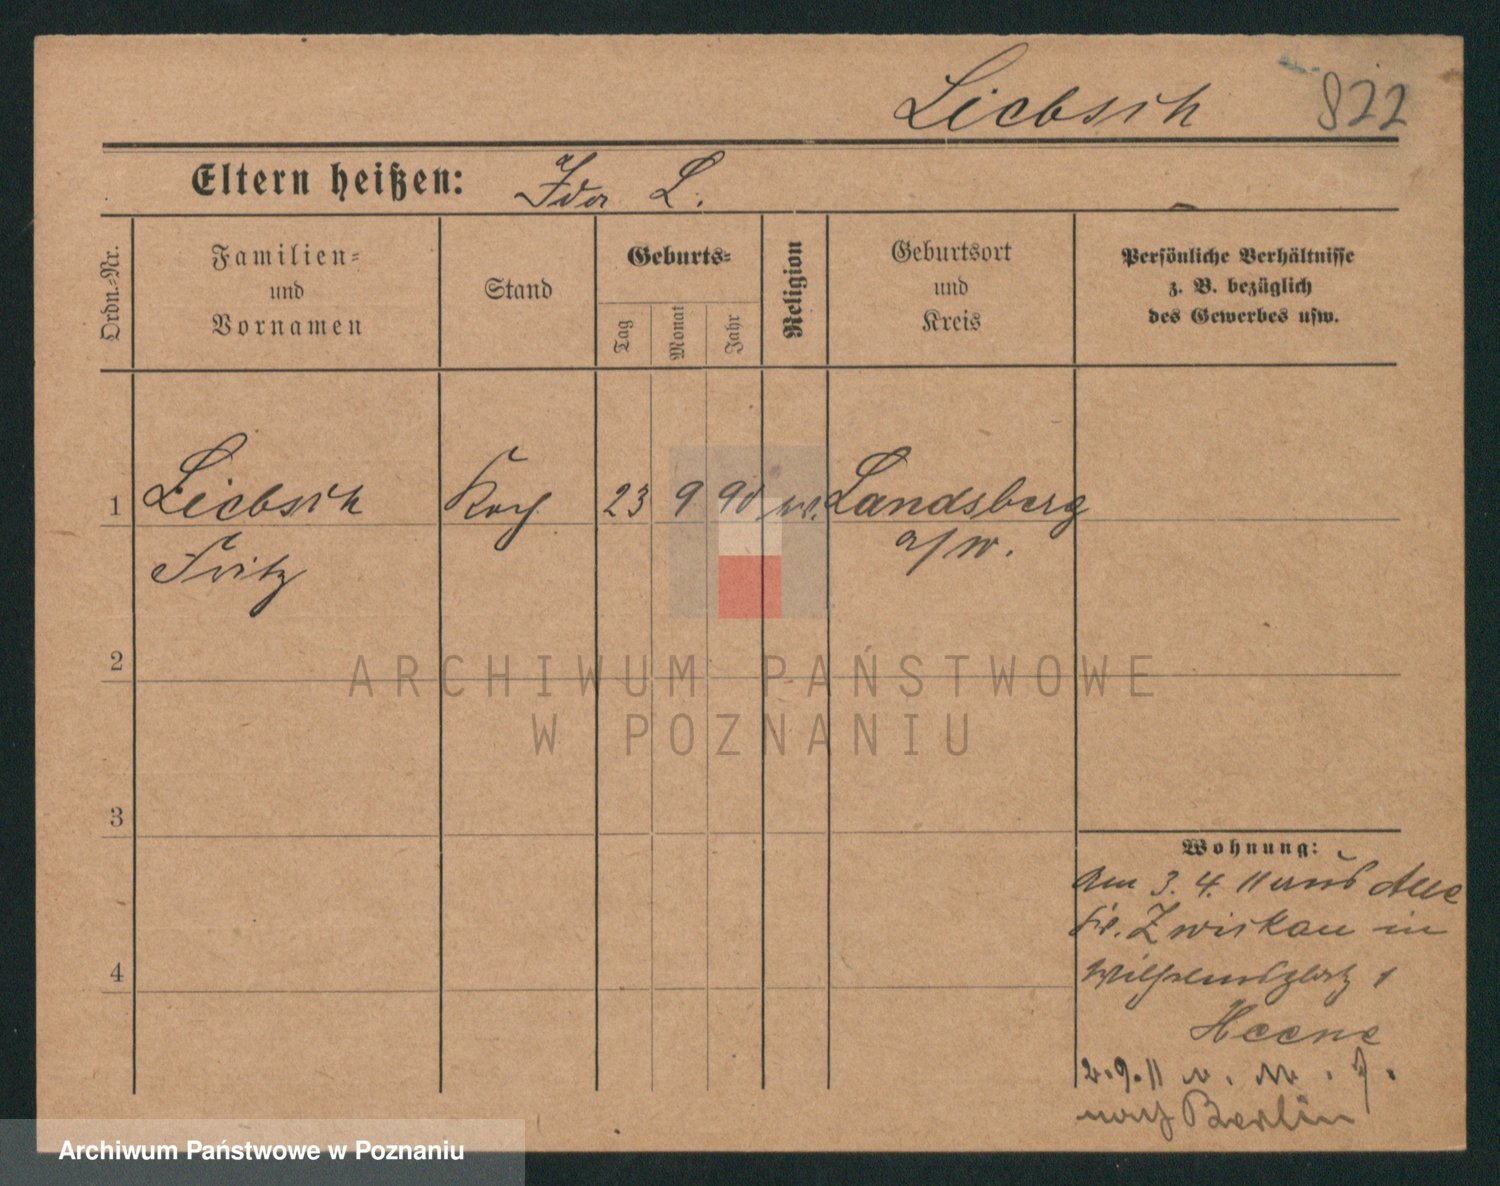 Liebsch 822
Eltern heißen: Ida L.
Ordn.-Nr.
Familien-
und
Vornamen
Stand
Geburts-
Tag
Monat
Jahr
Religion
Geburtsort
und
Kreis
Persönliche Verhältnisse
z. B. bezüglich
des Gewerbes usw.
1 Liebsch Koch 23 9 90 ev. Landsberg
Fritz a/W.
2
3
4
Wohnung:
Am 3.4.11 aus Aue
Zwickau in
Wilhelmsplatz 1
Heene
2.9.11 v.
nach Berlin
ARCHIWUM PAŃSTWOWE
W POZNANIU
Archiwum Państwowe w Poznaniu